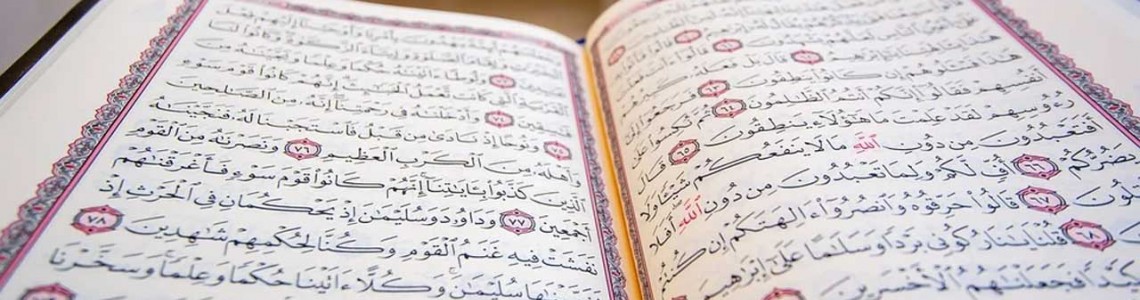 ٱلنَّاسِ لَعَلَّهُمْ يَشْهَدُونَ ٦١ قَالُوٓا۟ ءَأَنتَ فَعَلْتَ
هَٰذَا بِـَٔالِهَتِنَا يَٰٓإِبْرَٰهِيمُ ٦٢ قَالَ بَلْ فَعَلَهُۥ كَبِيرُهُمْ
هَٰذَا فَسْـَٔلُوهُمْ إِن كَانُوا۟ يَنطِقُونَ ٦٣ فَرَجَعُوٓا۟ إِلَىٰٓ
أَنفُسِهِمْ فَقَالُوٓا۟ إِنَّكُمْ أَنتُمُ ٱلظَّٰلِمُونَ ٦٤ ثُمَّ نُكِسُوا۟ عَلَىٰ
رُءُوسِهِمْ لَقَدْ عَلِمْتَ مَا هَٰٓؤُلَآءِ يَنطِقُونَ ٦٥ قَالَ
أَفَتَعْبُدُونَ مِن دُونِ ٱللَّهِ مَا لَا يَنفَعُكُمْ شَيْـًٔا وَلَا
يَضُرُّكُمْ ٦٦ أُفٍّ لَّكُمْ وَلِمَا تَعْبُدُونَ مِن دُونِ ٱللَّهِ أَفَلَا
ـقِلُونَ ٦٧ قَالُوا۟ حَرِّقُوهُ وَٱنصُرُوٓا۟ ءَالِهَتَكُمْ إِن كُنتُمْ
٦٨ قُلْنَا يَٰنَارُ كُونِى بَرْدًا وَسَلَٰمًا عَلَىٰٓ إِبْرَٰهِيمَ
كَيْدًا فَجَعَلْنَٰهُمُ ٱلْأَخْسَرِينَ
وَجَعَلْنَٰهُمْ أَئِمَّةً يَهْدُونَ بِأَمْرِنَا وَأَوْحَيْنَآ إِلَيْهِمْ فِعْلَ
ٱلْخَيْرَٰتِ وَإِقَامَ ٱلصَّلَوٰةِ وَإِيتَآءَ ٱلزَّكَوٰةِ وَكَانُوا۟ لَنَا
عَٰبِدِينَ ٧٣ وَلُوطًا ءَاتَيْنَٰهُ حُكْمًا وَعِلْمًا وَنَجَّيْنَٰهُ مِنَ
ٱلْقَرْيَةِ ٱلَّتِى كَانَت تَّعْمَلُ ٱلْخَبَٰٓئِثَ إِنَّهُمْ كَانُوا۟ قَوْمَ سَوْءٍ
فَٰسِقِينَ ٧٤ وَأَدْخَلْنَٰهُ فِى رَحْمَتِنَآ إِنَّهُۥ مِنَ ٱلصَّٰلِحِينَ
٧٥ وَنُوحًا إِذْ نَادَىٰ مِن قَبْلُ فَٱسْتَجَبْنَا لَهُۥ فَنَجَّيْنَٰهُ
وَأَهْلَهُۥ مِنَ ٱلْكَرْبِ ٱلْعَظِيمِ ٧٦ وَنَصَرْنَٰهُ مِنَ ٱلْقَوْمِ
ٱلَّذِينَ كَذَّبُوا۟ بِـَٔايَٰتِنَآ إِنَّهُمْ كَانُوا۟ قَوْمَ سَوْءٍ فَأَغْرَقْنَٰهُمْ
أَجْمَعِينَ ٧٧ وَدَاوُۥدَ وَسُلَيْمَٰنَ إِذْ يَحْكُمَانِ فِى ٱلْحَرْثِ إِذْ
نَفَشَتْ فِيهِ غَنَمُ ٱلْقَوْمِ وَكُنَّا لِحُكْمِهِمْ شَٰهِدِينَ ٧٨
فَفَهَّمْنَٰهَا سُلَيْمَٰنَ وَكُلًّا ءَاتَيْنَا حُكْمًا وَعِلْمًا وَسَخَّرْنَا